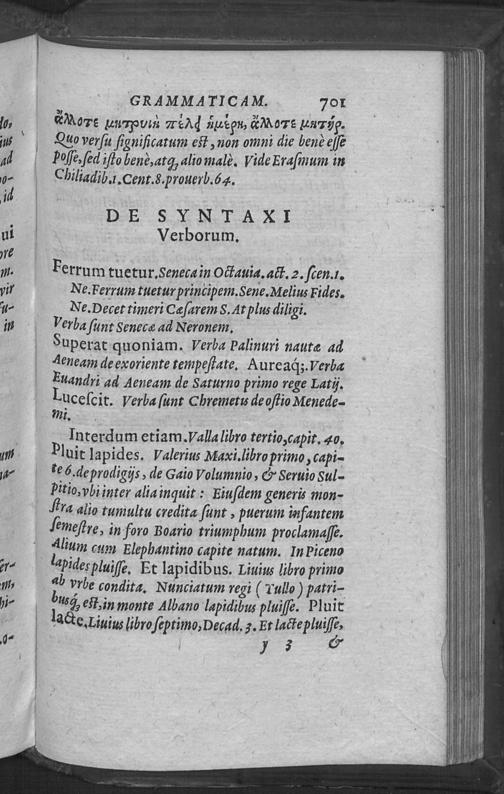 GRAMMATICAM. 701
ἄλλοτε μητρυιὴ πέλει ἡμέρη, ἄλλοτε μητήρ.
Quo versu significatum est, non omni die benè esse
posse, sed isto benè, atq́, alio malè. Vide Erasmum in
Chiliadib.1.Cent.8.prouerb.64.
DE SYNTAXI
Verborum.
Ferrum tuetur. Seneca in Octauia. act. 2. scen.1.
Ne. Ferrum tuetur principem. Sene. Melius Fides.
Ne. Decet timeri Cæsarem S. At plus diligi.
Verba sunt Senecæ ad Neronem.
Superat quoniam. Verba Palinuri nautæ ad
Aeneam de exoriente tempestate. Aureaq́;. Verba
Euandri ad Aeneam de Saturno primo rege Latij.
Lucescit. Verba sunt Chremetis de ostio Menede-
mi.
Interdum etiam. Valla libro tertio, capit. 40.
Pluit lapides. Valerius Maxi. libro primo, capi-
te 6. de prodigijs, de Gaio Volumnio, & Seruio Sul-
pitio, vbi inter alia inquit: Eiusdem generis mon-
stra alio tumultu credita sunt, puerum infantem
semestre, in foro Boario triumphum proclamasse.
Alium cum Elephantino capite natum. In Piceno
lapides pluisse. Et lapidibus. Liuius libro primo
ab vrbe condita. Nunciatum regi (Tullo) patri-
busq́, est, in monte Albano lapidibus pluisse. Pluit
lacte. Liuius libro septimo, Decad. 3. Et lacte pluisse,
y 3 &